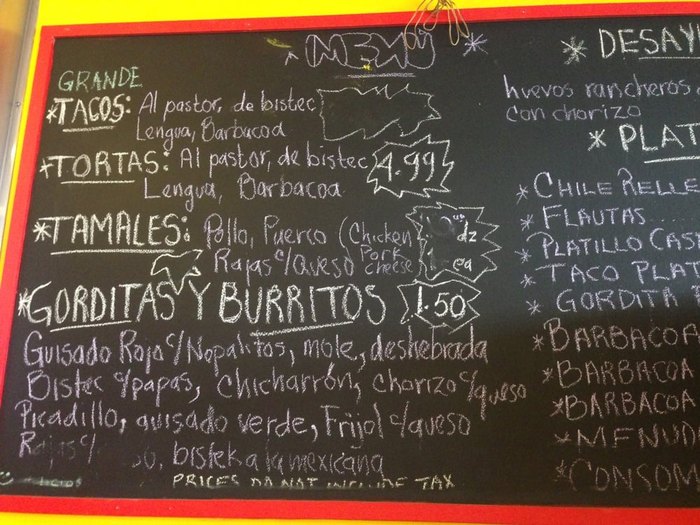 MENU
GRANDE
*TACOS: Al pastor, de bistec
Lengua, Barbacoa
*TORTAS: Al pastor, de bistec 4.99
Lengua, Barbacoa
*TAMALES: Pollo, Puerco (Chicken dz
Rajas c/Queso Pork
cheese ea
*GORDITAS Y BURRITOS 1.50
Guisado Rojo c/Nopalitos, mole, deshebrada
Bistec c/papas, chicharrón, chorizo c/queso
Picadillo, guisado verde, Frijol c/queso
Rajas c/ bistek a la mexicana
PRICES DO NOT INCLUDE TAX
* DESAY
huevos rancheros
con chorizo
* PLAT
* CHILE RELLE
* FLAUTAS
* PLATILLO CAS
* TACO PLAT
* GORDITA
* BARBACOA
* BARBACOA
* BARBACOA
* MENUD
* CONSOM